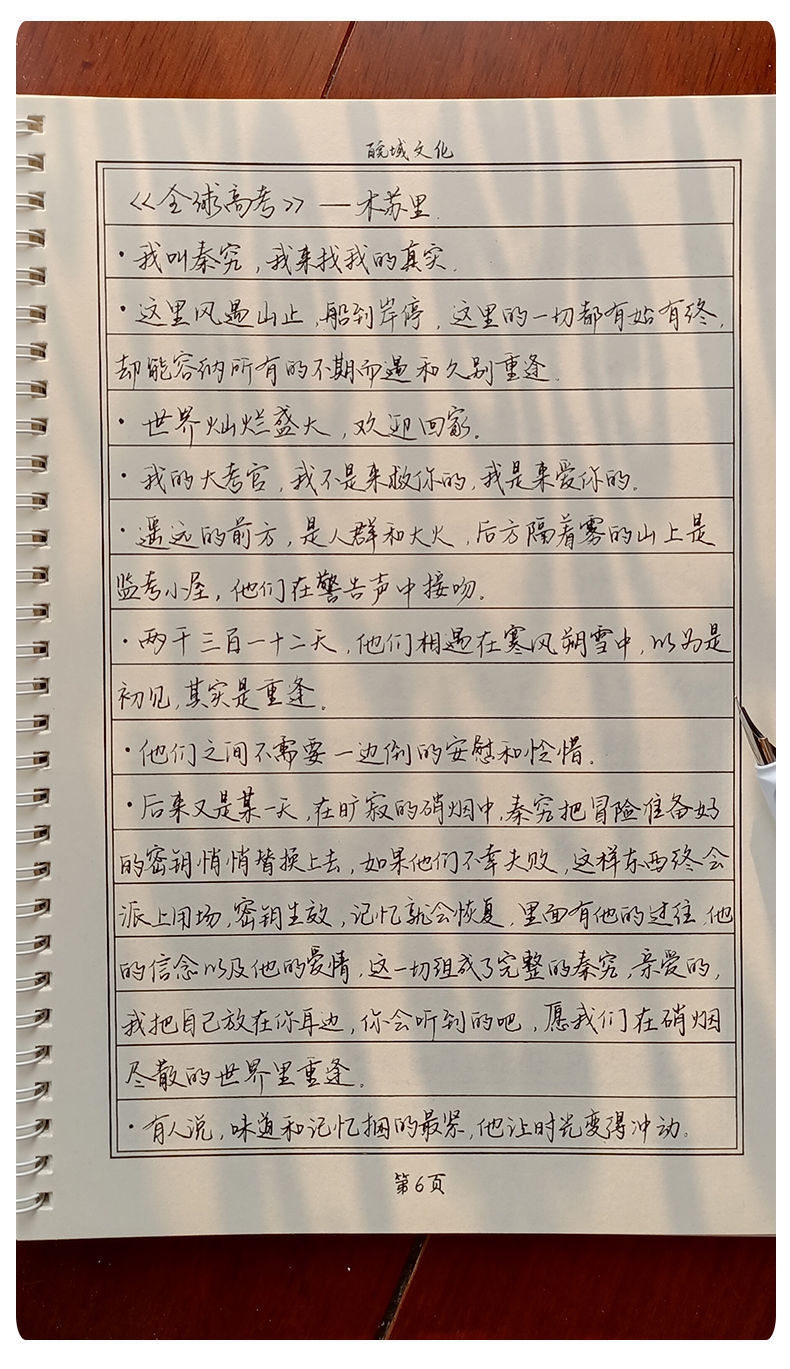 皖域文化
《全球高考》—木苏里.
·我叫秦究,我来找我的真实.
·这里风遇山止,船到岸停,这里的一切都有始有终,
却能容纳所有的不期而遇和久别重逢.
·世界灿烂盛大,欢迎回家。
·我的大考官,我不是来救你的,我是来爱你的。
·遥远的前方,是人群和大火,后方隔着雾的山上是
监考小屋,他们在警告声中接吻。
·两千三百一十二天,他们相遇在寒风朔雪中,以为是
初见,其实是重逢。
·他们之间不需要一边倒的安慰和怜惜.
·后来又是某一天,在旷寂的硝烟中,秦究把冒险准备好
的密钥悄悄替换上去,如果他们不幸失败,这样东西终会
派上用场,密钥生效,记忆就会恢复,里面有他的过往,他
的信念以及他的爱情,这一切组成了完整的秦究,亲爱的,
我把自己放在你耳边,你会听到的吧,愿我们在硝烟
尽散的世界里重逢.
·有人说,味道和记忆捆的最紧,他让时光变得冲动。
第6页